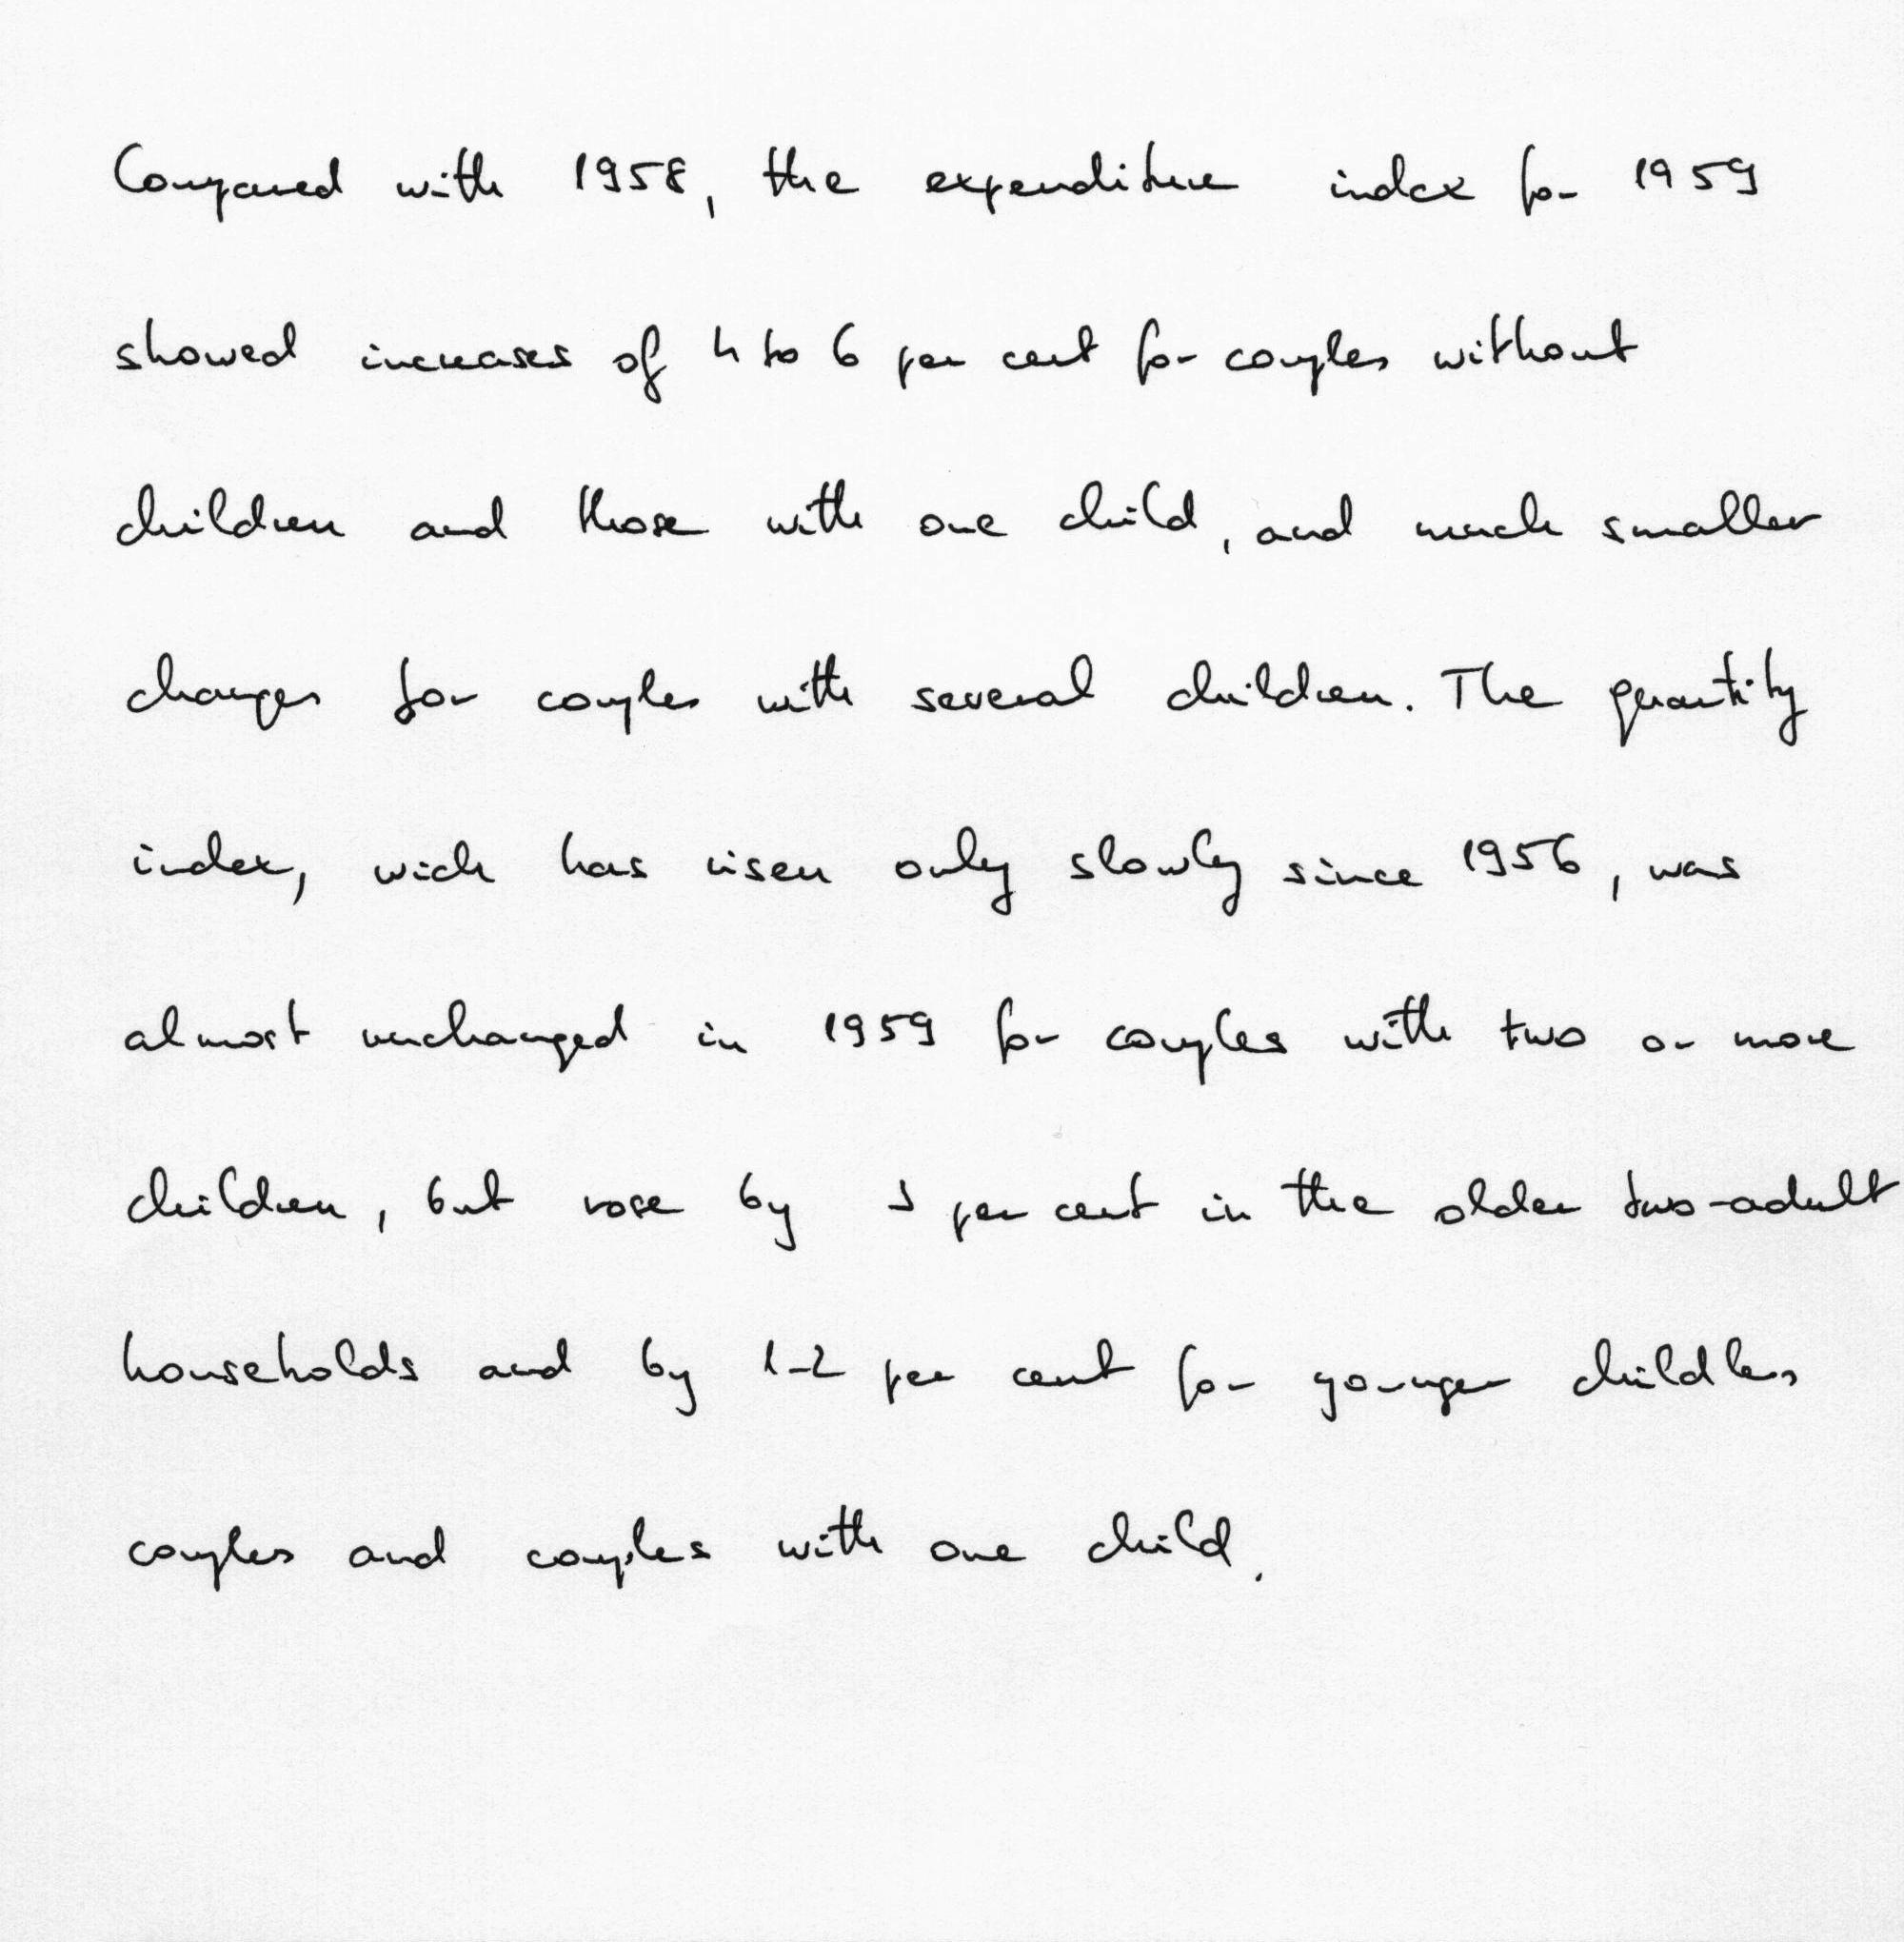 Compared with 1958, the expenditure index for 1959
showed increases of 4 to 6 per cent for couples without
children and those with one child, and much smaller
changes for couples with several children. The quantity
index, wich has risen only slowly since 1956, was
almost unchanged in 1959 for couples with two or more
children, but rose by 3 per cent in the older two-adult
households and by 1-2 per cent for younger childless
couples and couples with one child.